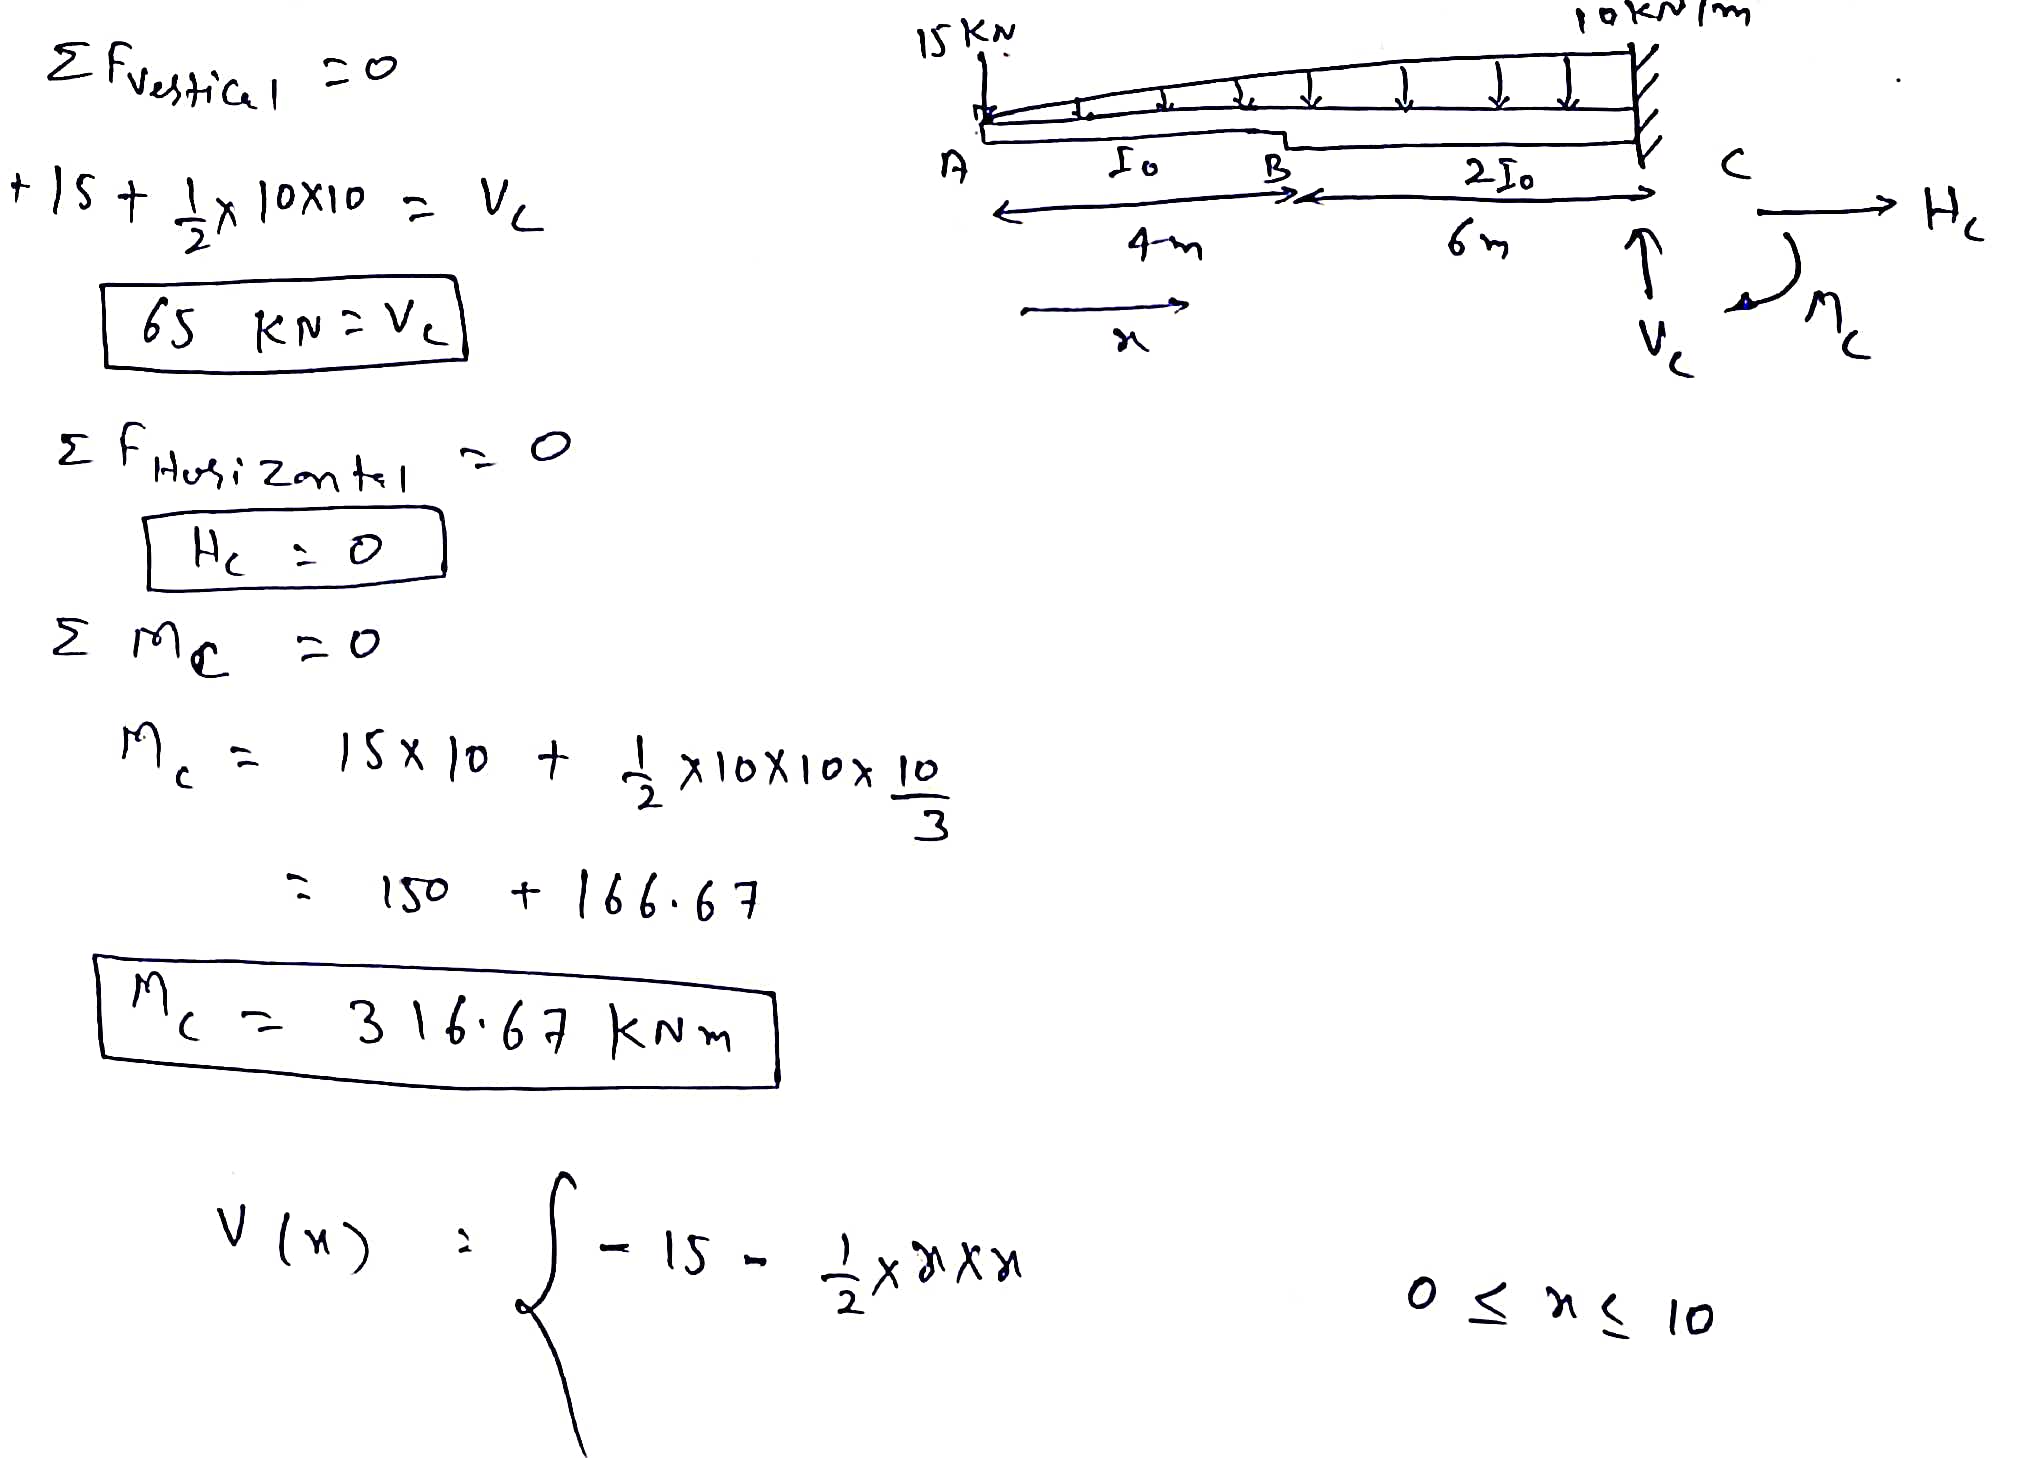 Σ Fvertical = 0
+ 15 + 1/2 × 10×10 = Vc
65 KN = Vc
Σ F Horizontal = 0
Hc = 0
Σ Mc = 0
Mc = 15×10 + 1/2 ×10×10× 10/3
= 150 + 166.67
Mc = 316.67 KNm
V(x) = { - 15 - 1/2 × x × x 0 ≤ x ≤ 10
15 KN
10 KN/m
A I₀ B 2I₀ C
4m 6m
x
Hc
Vc
Mc